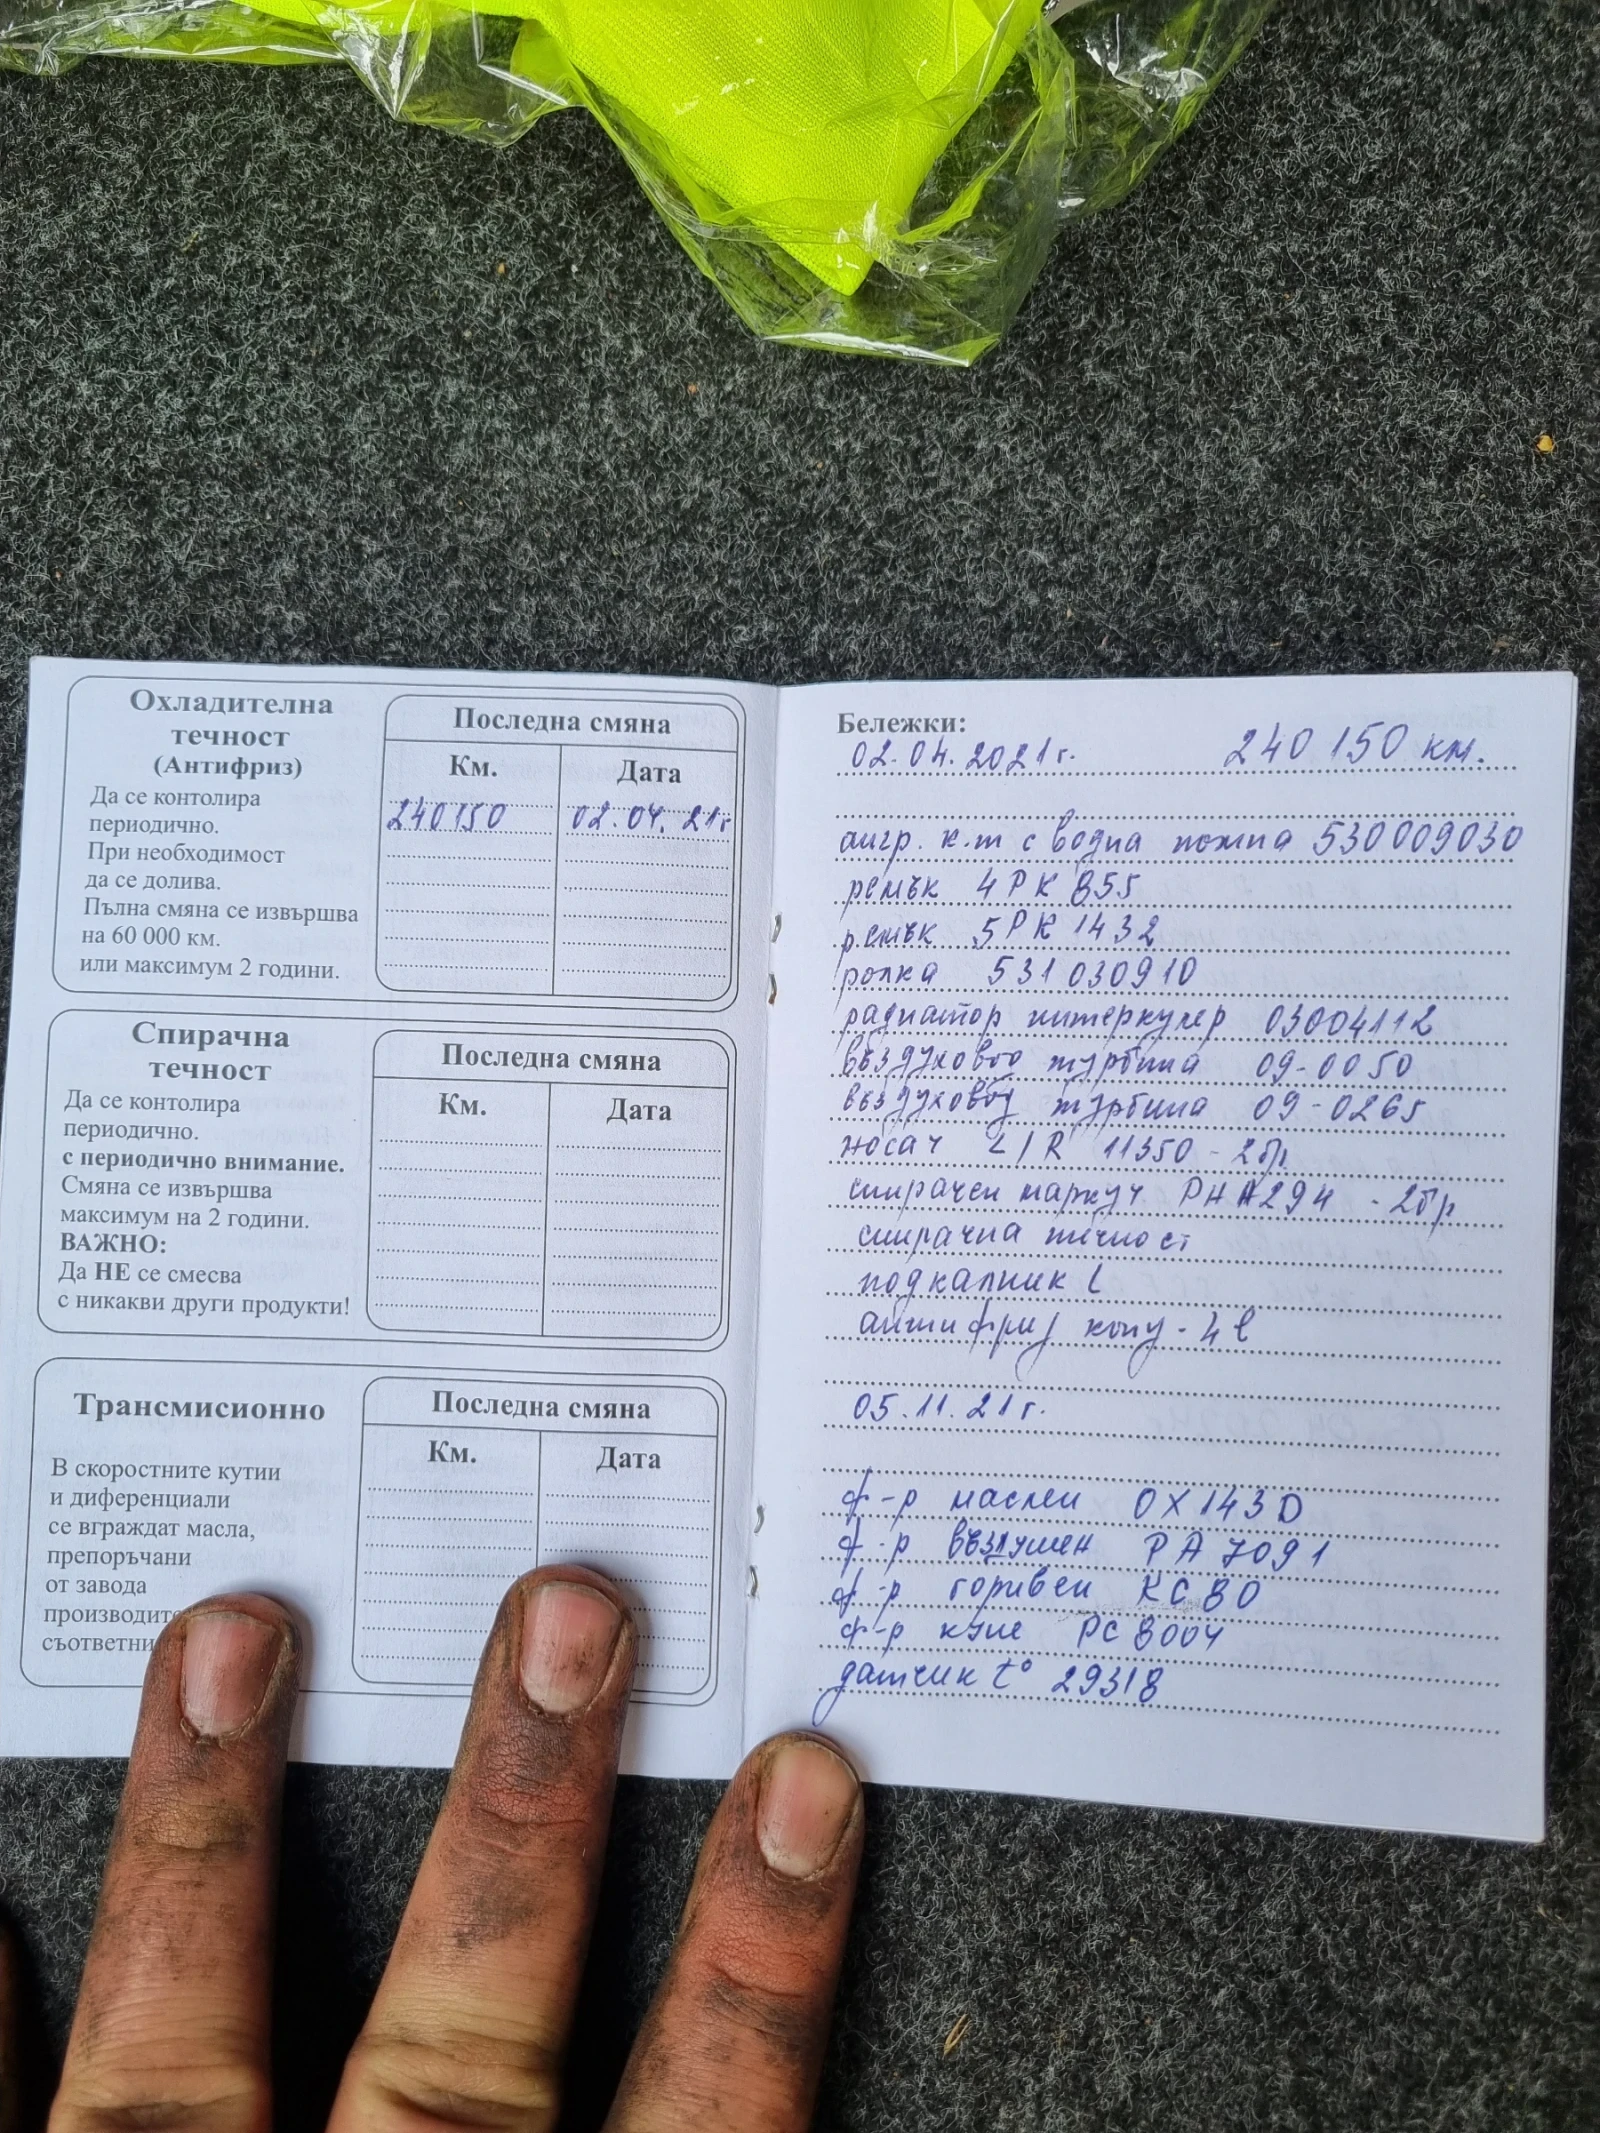 Охладителна
течност
(Антифриз)
Да се контолира
периодично.
При необходимост
да се долива.
Пълна смяна се извършва
на 60 000 км.
или максимум 2 години.
Последна смяна
Км.
Дата
240150
02.04.21г
Спирачна
течност
Да се контолира
периодично.
с периодично внимание.
Смяна се извършва
максимум на 2 години.
ВАЖНО:
Да НЕ се смесва
с никакви други продукти!
Последна смяна
Км.
Дата
Трансмисионно
В скоростните кутии
и диференциали
се вграждат масла,
препоръчани
от завода
производит
съответни
Последна смяна
Км.
Дата
Бележки:
02.04.2021г. 240 150 км.
ангр. к-т с водна помпа 530009030
ремък 4PK 855
ремък 5PK 1432
ролка 531 0309 10
радиатор интеркулер 03004112
въздуховод турбина 09-0050
въздуховод турбина 09-0265
носач L/R 11350 - 2бр
спирачен маркуч PHA294 - 2бр
спирачна течност
подкалник L
антифриз - 4л
05.11.21г.
ф-р маслен OX143D
ф-р въздушен PA7091
ф-р горивен KC80
ф-р купе PC8004
датчик t° 29318